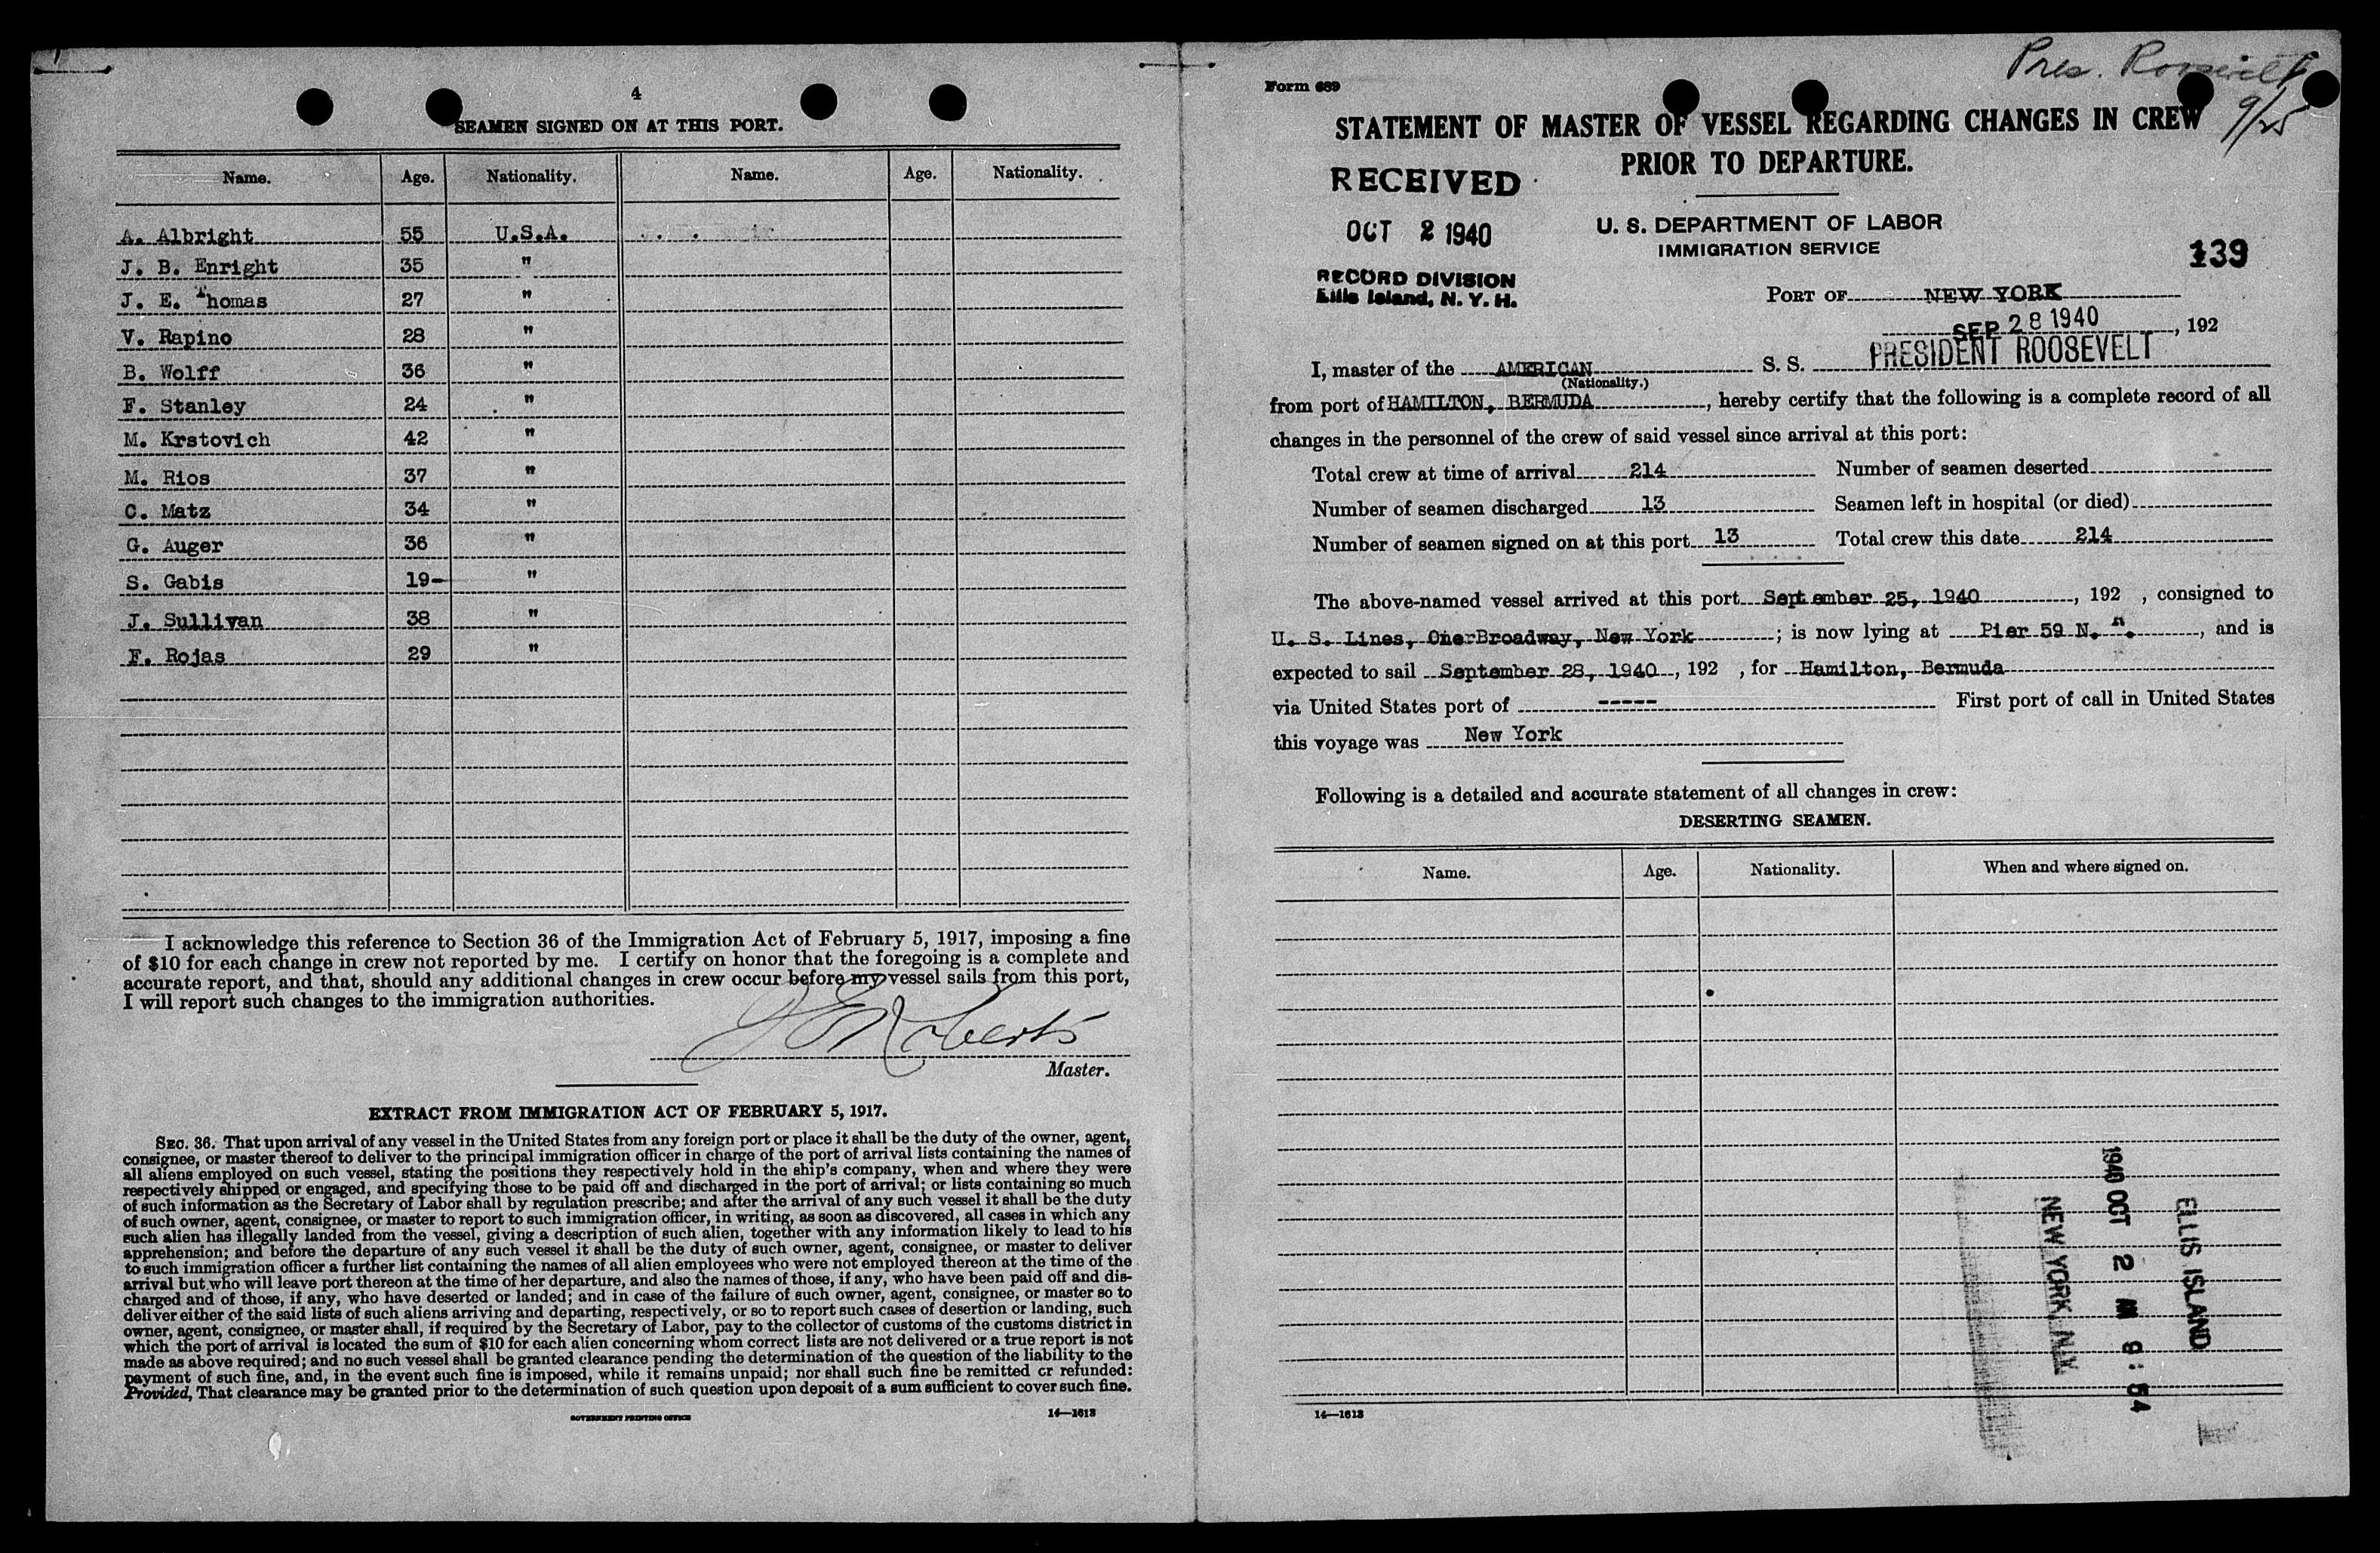 4
SEAMEN SIGNED ON AT THIS PORT.
Name. Age. Nationality. Name. Age. Nationality.
A. Albright 55 U.S.A.
J. B. Enright 35 "
J. E. Thomas 27 "
V. Rapino 28 "
B. Wolff 36 "
F. Stanley 24 "
M. Krstovich 42 "
M. Rios 37 "
C. Matz 34 "
G. Auger 36 "
S. Gabis 19- "
J. Sullivan 38 "
F. Rojas 29 "
I acknowledge this reference to Section 36 of the Immigration Act of February 5, 1917, imposing a fine
of $10 for each change in crew not reported by me. I certify on honor that the foregoing is a complete and
accurate report, and that, should any additional changes in crew occur before my vessel sails from this port,
I will report such changes to the immigration authorities.
Roberts
Master.
EXTRACT FROM IMMIGRATION ACT OF FEBRUARY 5, 1917.
SEC. 36. That upon arrival of any vessel in the United States from any foreign port or place it shall be the duty of the owner, agent,
consignee, or master thereof to deliver to the principal immigration officer in charge of the port of arrival lists containing the names of
all aliens employed on such vessel, stating the positions they respectively hold in the ship's company, when and where they were
respectively shipped or engaged, and specifying those to be paid off and discharged in the port of arrival; or lists containing so much
of such information as the Secretary of Labor shall by regulation prescribe; and after the arrival of any such vessel it shall be the duty
of such owner, agent, consignee, or master to report to such immigration officer, in writing, as soon as discovered, all cases in which any
such alien has illegally landed from the vessel, giving a description of such alien, together with any information likely to lead to his
apprehension; and before the departure of any such vessel it shall be the duty of such owner, agent, consignee, or master to deliver
to such immigration officer a further list containing the names of all alien employees who were not employed thereon at the time of the
arrival but who will leave port thereon at the time of her departure, and also the names of those, if any, who have been paid off and dis-
charged and of those, if any, who have deserted or landed; and in case of the failure of such owner, agent, consignee, or master so to
deliver either of the said lists of such aliens arriving and departing, respectively, or so to report such cases of desertion or landing, such
owner, agent, consignee, or master shall, if required by the Secretary of Labor, pay to the collector of customs of the customs district in
which the port of arrival is located the sum of $10 for each alien concerning whom correct lists are not delivered or a true report is not
made as above required; and no such vessel shall be granted clearance pending the determination of the question of the liability to the
payment of such fine, and, in the event such fine is imposed, while it remains unpaid; nor shall such fine be remitted or refunded:
Provided, That clearance may be granted prior to the determination of such question upon deposit of a sum sufficient to cover such fine.
GOVERNMENT PRINTING OFFICE 14—1613
Pres. Roosevelt
9/25
Form 689
STATEMENT OF MASTER OF VESSEL REGARDING CHANGES IN CREW
PRIOR TO DEPARTURE.
RECEIVED
OCT 2 1940
RECORD DIVISION
Ellis Island, N. Y. H.
U. S. DEPARTMENT OF LABOR
IMMIGRATION SERVICE
139
PORT OF NEW YORK
SEP 28 1940, 192
I, master of the AMERICAN S. S. PRESIDENT ROOSEVELT
(Nationality.)
from port of HAMILTON, BERMUDA, hereby certify that the following is a complete record of all
changes in the personnel of the crew of said vessel since arrival at this port:
Total crew at time of arrival 214 Number of seamen deserted
Number of seamen discharged 13 Seamen left in hospital (or died)
Number of seamen signed on at this port 13 Total crew this date 214
The above-named vessel arrived at this port September 25, 1940, 192 , consigned to
U. S. Lines, One Broadway, New York; is now lying at Pier 59 N. , and is
expected to sail September 28, 1940, 192 , for Hamilton, Bermuda
via United States port of ----- First port of call in United States
this voyage was New York
Following is a detailed and accurate statement of all changes in crew:
DESERTING SEAMEN.
Name. Age. Nationality. When and where signed on.
ELLIS ISLAND
1940 OCT 2 AM 9:54
NEW YORK N.Y.
14—1613